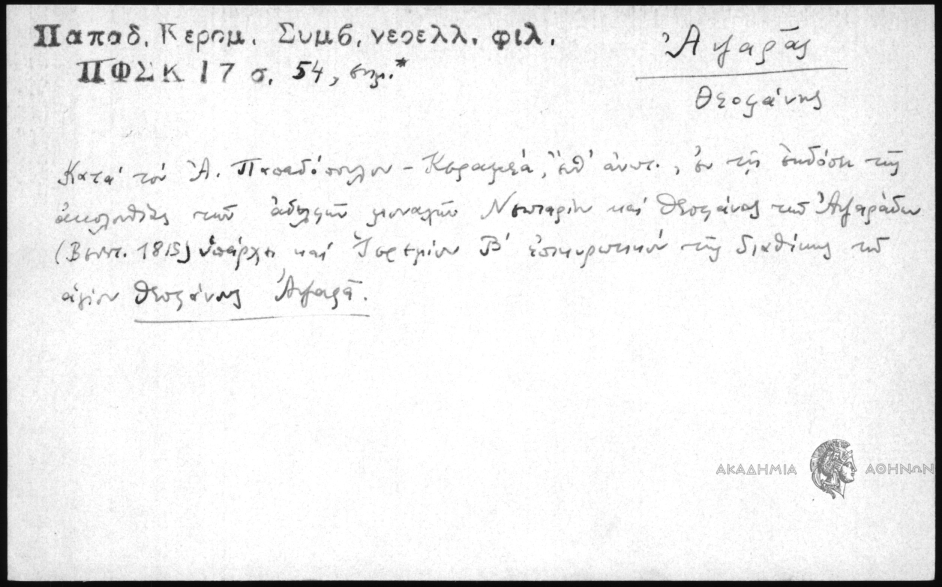 Παπαδ. Κεραμ. Συμβ. νεοελλ. φιλ.
ΠΦΣΚ 17 σ. 54, σημ.*
Ἀψαρᾶς
Θεοφάνης
Κατὰ τὸν Ἀ. Παπαδόπουλον - Κεραμέα, ἔνθ' ἀνωτ., ἐν τῇ ἐκδόσει τῆς
ἀκολουθίας τῶν ἀδελφῶν μοναχῶν Νεκταρίου καὶ Θεοφάνους τῶν Ἀψαράδων
(Βενετ. 1815) ὑπάρχει καὶ Ἱερεμίου Β' ἐπικυρωτικὸν τῆς διαθήκης τοῦ
ἁγίου Θεοφάνους Ἀψαρᾶ.
ΑΚΑΔΗΜΙΑ ΑΘΗΝΩΝ